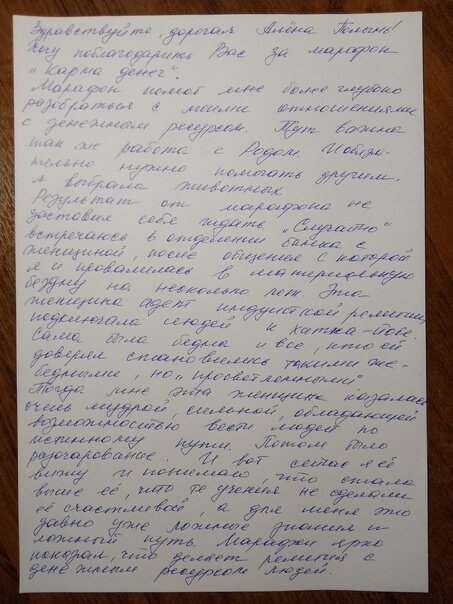 Здравствуйте, дорогая Алёна Полынь!
Хочу поблагодарить Вас за марафон
„Карма денег".
Марафон помог мне более глубоко
разобраться с моими отношениями
с денежном ресурсом. Тут важна
так же работа с Родом. И обяза-
тельно нужно помогать другим,
я выбрала животных.
Результат от марафона не
заставил себя ждать. „Случайно"
встречаюсь в отделении банка с
женщиной, после общения с которой
я и провалилась в материальную
бездну на несколько лет. Эта
женщина адепт индуистской религии,
подключала людей к хатха-йоге.
Сама была бедна и все, кто ей
доверял становились такими же-
бедными, но „просветленными".
Тогда мне эта женщина казалась
очень мудрой, сильной, обладающей
возможностью вести людей по
истинному пути. Потом было
разочарование. И вот сейчас я её
вижу и понимаю, что стала
выше её, что те учения не сделали
её счастливой, а для меня это
давно уже ложные знания и
ложный путь. Марафон ярко
показал, что делает религия с
денежным ресурсом людей.